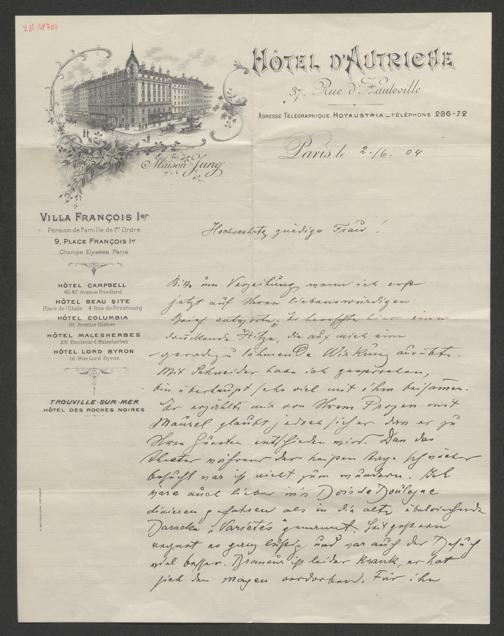 HÔTEL D'AUTRICHE
37, Rue d'Hauteville
ADRESSE TÉLÉGRAPHIQUE, HOTAUSTRIA_TÉLÉPHONE 286-72
Maison Jung
Paris, le 2./6. 04
VILLA FRANÇOIS 1er
Pension de Famille de 1er Ordre
9, PLACE FRANÇOIS 1er
Champs Elysées, Paris
HÔTEL CAMPBELL
45.47, Avenue Friedland
HÔTEL BEAU SITE
Place de l'Etoile 4 Rue de Presbourg
HÔTEL COLUMBIA
16, Avenue Kléber
HÔTEL MALESHERBES
26, Boulevard Malesherbes
HÔTEL LORD BYRON
16, Rue Lord Byron
TROUVILLE-SUR-MER
HÔTEL DES ROCHES NOIRES
Hochverehrte, gnädige Frau!
Bitte um Verzeihung wenn ich erst
jetzt auf Ihren liebenswürdigen
Brief antworte. Es herrschte hier eine
drückende Hitze, die auf mich eine
geradezu lähmende Wirkung ausübte.
Mit Schneider habe ich gesprochen,
bin überhaupt sehr viel mit ihm beisammen.
Er erzählte mir von Ihrem Prozess mit
Maurel glaubt jedoch sicher dass er zu
Ihren Gunsten entschieden wird. Dass das
Theater während der heissen Tage schwächer
besucht war ist nicht zum wundern. Ich
wäre auch lieber ins Bois de Boulogne
dinieren gefahren als in die alte übelriechende
Baracke "Variétés" genannt. Seit gestern
regnet es ganz lustig und war auch der Besuch
viel besser. Brasseur ist leider krank, er hat
sich den Magen verdorben. Für ihn